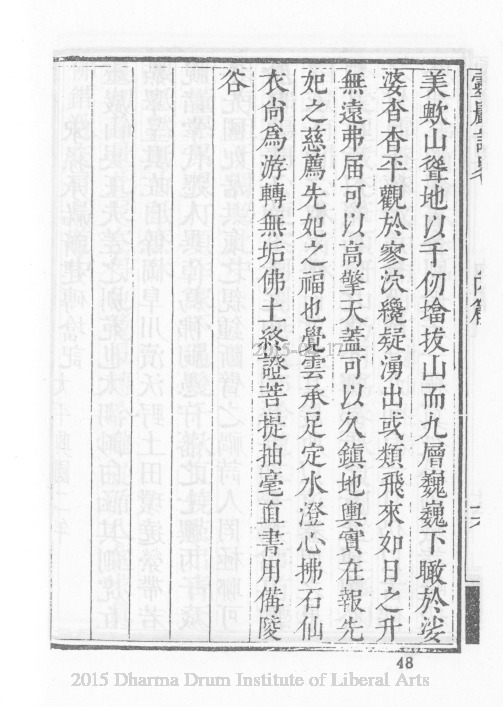 靈巖記畧 內篇
美歟山聳地以千仞墖拔山而九層巍巍下瞰於娑
婆杳杳平觀於寥泬纔疑湧出或類飛來如日之升
無遠弗届可以高擎天蓋可以久鎮地輿實在報先
妃之慈薦先妃之福也覺雲承足定水澄心拂石仙
衣尙爲游轉無垢佛土終證菩提抽毫直書用備陵
谷
48
2015 Dharma Drum Institute of Liberal Arts